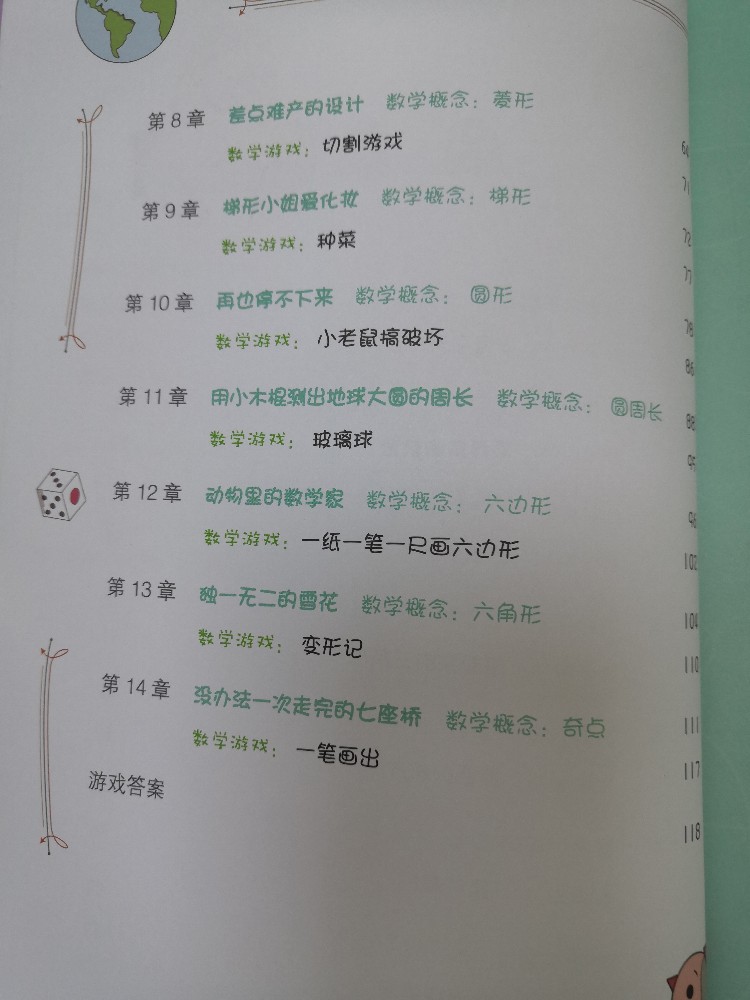 第 8 章 差点难产的设计 数学概念：菱形
数学游戏：切割游戏
第 9 章 梯形小姐爱化妆 数学概念：梯形 71
数学游戏：种菜 72
77
第 10 章 再也停不下来 数学概念：圆形 78
数学游戏：小老鼠搞破坏 86
第 11 章 用小木棍测出地球大圆的周长 数学概念：圆周长 88
数学游戏：玻璃球 95
第 12 章 动物里的数学家 数学概念：六边形 96
数学游戏：一纸一笔一尺画六边形 102
第 13 章 独一无二的雪花 数学概念：六角形 104
数学游戏：变形记 110
第 14 章 没办法一次走完的七座桥 数学概念：奇点 111
数学游戏：一笔画出 117
游戏答案 118